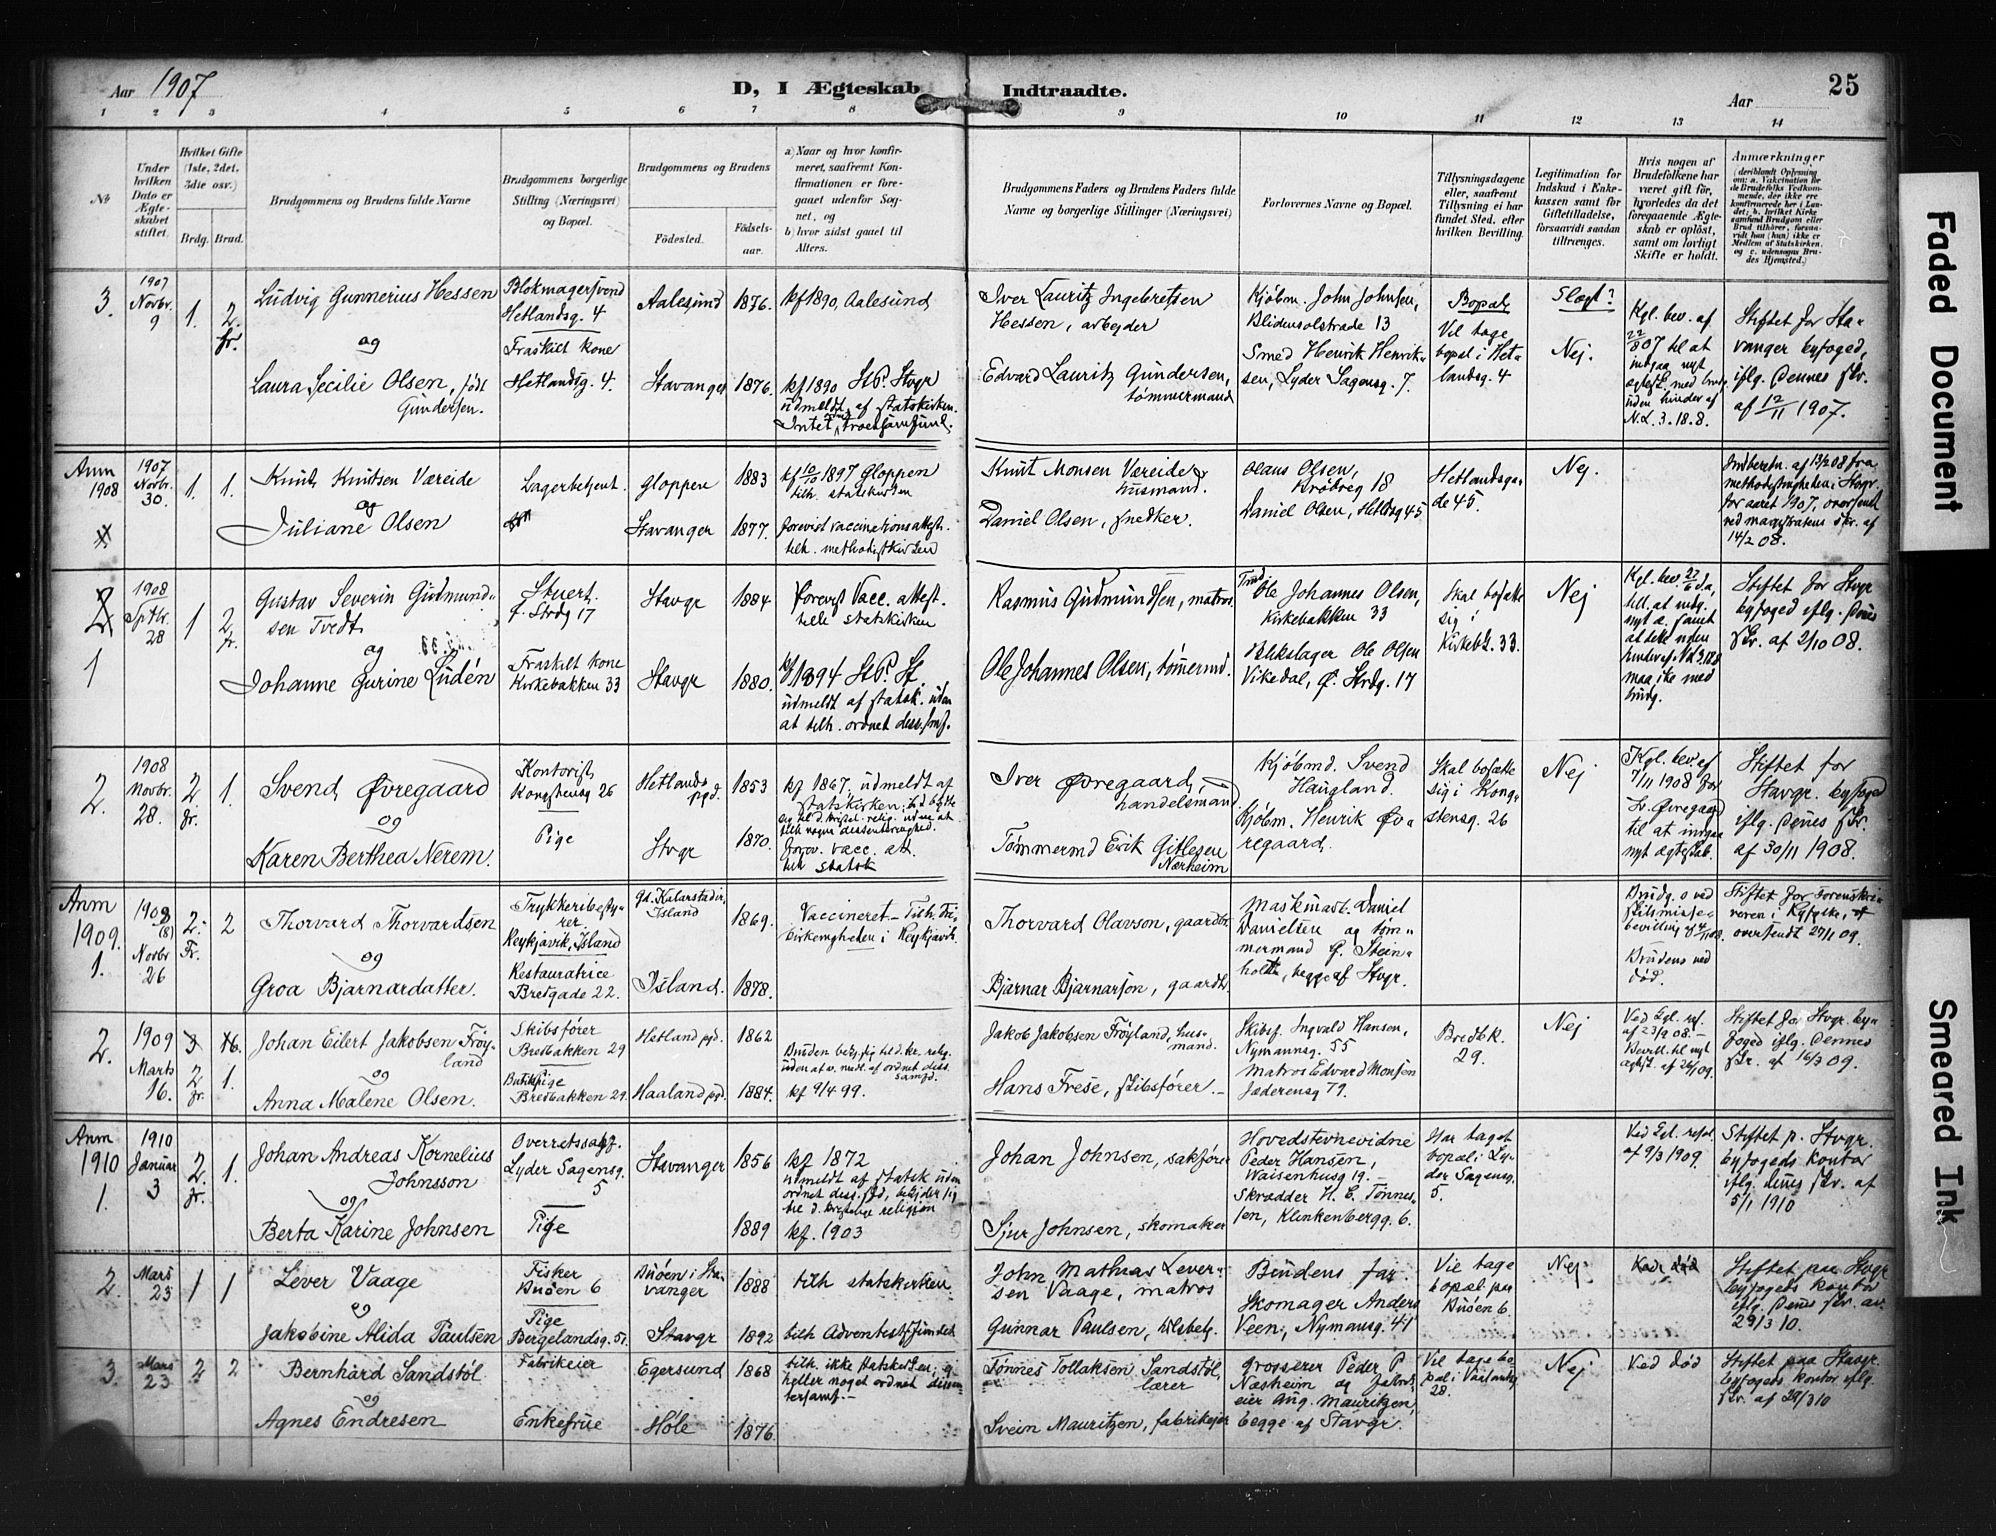 Aar 1907
D, I Ægteskab
Indtraadte.
Aar
25
1 2 3 4 5 6 7 8 9 10 11 12 13 14
No
Under hvilken Dato er Ægteskabet stiftet.
Hvilket Gifte (1ste, 2det, 3die osv.)
Brdg. Brud.
Brudgommens og Brudens fulde Navne
Brudgommens borgerlige Stilling (Næringsvei) og Bopæl.
Brudgommens og Brudens
Födested.
Födselsaar.
a) Naar og hvor konfirmeret, saafremt Konfirmationen er foregaaet udenför Sognet, og
b) hvor sidst gaaet til Alters.
Brudgommens Faders og Brudens Faders fulde Navne og borgerlige Stillinger (Næringsvei)
Forlovernes Navne og Bopæl.
Tillysningsdagene eller, saafremt Tillysning ei har fundet Sted, efter hvilken Bevilling.
Legitimation for Indskud i Enkekassen samt for Giftetilladelse, forsaavidt saadan tiltrænges.
Hvis nogen af Brudefolkene har været gift för, hvorledes da det foregaaende Ægteskab er oplöst, samt om lovligt Skifte er holdt.
Anmærkninger
3. 1907 Novbr. 9
1. 2. fr.
Ludvig Gunnerius Hessen
og
Laura Secilie Olsen, født Gundersen.
Blokmagersvend
Hetlandsg. 4
Fraskilt kone
Hetlandsg. 4.
Aalesund 1876.
Stavanger 1876.
kf 1890, Aalesund
kf 1890 St.P. Stvgr
udmeldt af statskirken.
Intet troessamfund.
Iver Lauritz Ingebretsen
Hessen, arbeider
Edvard Lauritz Gundersen,
tømmermand
Kjøbm. John Johnsen,
Blidensolstrade 13
Smed Henrik Henriksen, Lyder Sagensg. 7.
Bopæl
Vil tage
bopæl i Hetlandsg. 4
Slægt?
Nej.
Kgl. bev. af
22/8 07 til at
indgaa nyt
ægtesk. med brudg.
uden hinder af
N.L. 3.18.8.
Stiftet for Stavanger byfoged,
iflg. dennes skr.
af 12/11 1907.
Anm 1908
1907 Novbr. 30.
1. 1.
Knut Knutsen Væreide
og
Juliane Olsen
Lagerbetjent.
Gloppen 1883
Stavanger 1877.
kf 10/10 1897 Gloppen
tilh. statskirken
forevist vaccinationsattest.
tilh. methodistkirken
Knut Monsen Væreide,
husmand.
Daniel Olsen, snedker.
Olaus Olsen,
18
Daniel Olsen, Hetldsg 45
Hetlandsgade 45.
Nej.
Indberetn. af 13/2 08 fra
methodistmenigheden i Stvgr.
for aaret 1907, oversendt
ved magistratens skr. af
14/2 08.
1
1908 Sptbr. 28
1 2 fr.
Gustav Severin Gudmundsen Tvedt
og
Johanne Gurine Ludén
Stuert.
Ø. Strdg 17
Fraskilt kone
Kirkebakken 33
Stavgr 1884
Stavgr 1880.
Forevist Vacc. attest.
tilh statskirken
kf 1894 St.P. St.
udmeldt af statsk. uden
at tilh. ordnet diss. smf.
Rasmus Gudmundsen, matros
Ole Johannes Olsen, tømmermd.
Tmd. Ole Johannes Olsen,
Kirkebakken 33
Blikslager Ole Olsen
Vikedal, Ø. Strdg. 17
Skal bosætte
sig i
Kirkebk. 33.
Nej
Kgl. bev.
Stiftet for Stvgr
byfoged iflg. denes
skr. af 2/10 08.
2.
1908 Novbr. 28.
2. fr. 1.
Svend Øvregaard
og
Karen Berthea Nerem.
Kontorist
Kongstensg 26
Pige
Hetlands pgd. 1853
Stvgr 1870.
kf 1867. udmeldt af
statskirken;
Forev. vacc. att.
tilh statsk
Iver Øvregaard,
handelsmand
Tømmermd Erik Gitlesen
Nærheim
Kjøbmd. Svend
Haugland.
Kjøbm. Henrik Øvregaard.
Skal bosætte
sig i Kongstensg. 26
Nej
Kgl. bev. af
7/11 1908 for
Sv. Øvregaard
til at inngaa
nyt ægteskab.
Stiftet for
Stavgr. byfoged
iflg. denes skr.
af 30/11 1908.
Anm 1909. 1.
1908 (8) Novbr 26
2. Fr. 2
Thorvard Thorvardsen
og
Groa Bjarnardatter.
Trykkeribestyrer.
Reykjavik, Island
Restauratrice
Bredgade 22.
Gd. Kalarstadir, Island 1869.
Island. 1878.
Vaccineret. – Tilh. Frikirkemenigheden i Reykjavik.
Thorvard Olavson, gaardbr.
Bjarnar Bjarnarson, gaardbr.
Maskinarb. Daniel
Danielsen og tømmermand Ø. Steinholdt, begge af Stvgr.
Brudg. s ved
skilsmissebevilling af 4/11 08.
Brudens ved
død.
Stiftet for Sorenskriveren i Ryfylke,
oversendt 27/1 09.
2.
1909 Marts 16.
2 fr. 1.
Johan Eilert Jakobsen Frøyland
og
Anna Malene Olsen.
Skibsfører
Bredbakken 29
Butikkpige
Bredbakken 29.
Hetland pgd. 1862
Haaland pgd. 1884.
kf 9/4 99.
Jakob Jakobsen Frøyland, husmand.
Hans Frese, skibsfører. –
Skibsf. Ingvald Hansen,
Nymannsg. 55
Matros Edvard Monsen
Jæderensg 79.
Bredbk. 29.
Nej
Ved Kgl. res.
af 23/9 08. –
Bevill. til nyt
ægtesk. af 26/1 09.
Stiftet for Stvgr. byfoged iflg. dennes
skr. af 16/3 09.
Anm 1910 1.
1910 Januar 3
2. fr. 1.
Johan Andreas Kornelius
Johnsson
og
Berta Karine Johnsen
Overretssagf.
Lyder Sagensg.
5
Pige
Stavanger 1856
1889
kf 1872
udmeldt af statsk uden
ordnet diss. sfd, bekjender sig
til d. kristelige religion
kf. 1903
Johan Johnsen, sakfører
Sjur Johnsen, skomaker
Hovedstevnevidne
Peder Hansen,
Waisenhusg 19. –
Skrædder H. E. Tønnesen, Klinkenbergg. 6.
Har taget
bopæl i Lyder Sagensg.
5.
Ved Kgl. resol.
af 9/3 1909.
Stiftet p. Stvgr.
byfogeds kontor
iflg. denes skr. af
5/1 1910
2.
Mars 23
1 1
Lever Vaage
og
Jakobine Alida Paulsen
Fisker
Buøen 6
Pige
Bergelandsg. 51.
Buøen i Stavanger 1888
Stavgr 1892
tilh statskirken
tilh Adventistsamfundet
John Mathias Leversen Vaage, matros
Gunnar Paulsen,
Brudens far.
Skomager Anders
Veen, Nymansg. 41
Vil tage
bopæl paa
Buøen 6.
Nej
Stiftet paa Stvgr
byfogeds kontor
iflg. denes skr. av
29/3 10.
3.
Mars 23
2 2
Bernhard Sandstøl
og
Agnes Endresen
Fabrikeier
Enkefrue
Egersund 1868
Høle 1876.
tilh. ikke statskirken,
heller noget ordnet dissentersamf. –
Tønnes Tollaksen Sandstøl,
lærer
Svein Mauritzen, fabrikejer
Grosserer Peder P.
Næsheim og fabrikeier Aug. Mauritzen,
begge af Stavgr.
Vil tage bopæl i
28.
Nej
Ved død
Stiftet paa Stavgr.
byfogeds kontor iflg.
skr. af 29/3 10
Faded Document
Smeared Ink